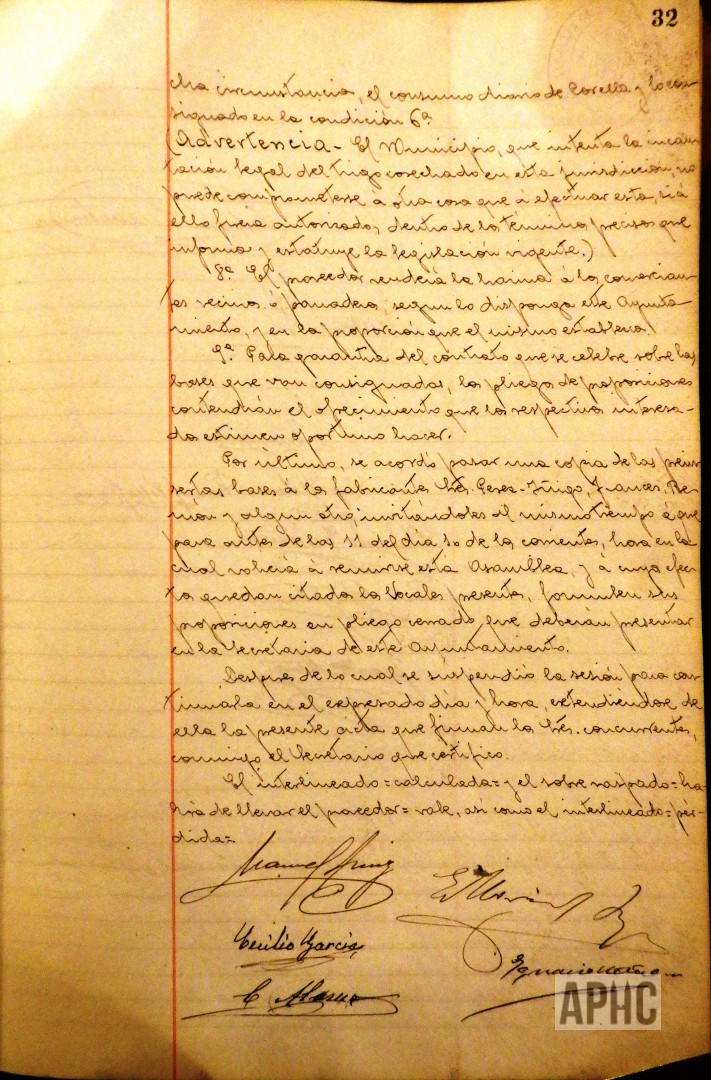 32
cha circunstancia, el consumo diario de Corella y lo con-
signado en la condición 6ª.
(Advertencia - El Municipio, que intenta la incau-
tación legal del trigo cosechado en esta jurisdicción, no
puede comprometerse á otra cosa que á efectuar esta, si á
ello fuera autorizado, dentro de los términos precisos que
informa y estatuye la legislación vigente.)
8ª El proveedor venderá la harina á los comercian-
tes vecinos ó panaderos, segun lo disponga este Ayunta-
miento, y en la proporción que el mismo establezca.
9ª Para garantia del contrato que se celebre sobre las
bases que van consignadas, los pliegos de proposiciones
contendrán el ofrecimiento que los respectivos interesa-
dos estimen oportuno hacer.
Por último, se acordó pasar una copia de las prein-
sertas bases á los fabricantes Sres. Perez-Iñigo, Frances,
y algun otro, invitándoles al mismo tiempo á que
para antes de las 11 del dia 10 de los corrientes, hora en la
cual volverá á reunirse esta Asamblea, y á cuyo efec-
to quedan citados los Vocales presentes, formulen sus
proposiciones en pliego cerrado que deberán presentar
en la Secretaria de este Ayuntamiento.
Despues de lo cual se suspendió la sesión para con-
tinuarla en el expresado dia y hora, extendiendose de
ella la presente acta que firman los Sres. concurrentes,
conmigo el Secretario que certifico.
El interlineado = calculada = y el sobre raspado = ha-
brá de llevar el proveedor = vale, así como el interlineado = pér-
dida =.
Manuel
Cecilio Garcia
Ignacio
C. Alonso
APHC